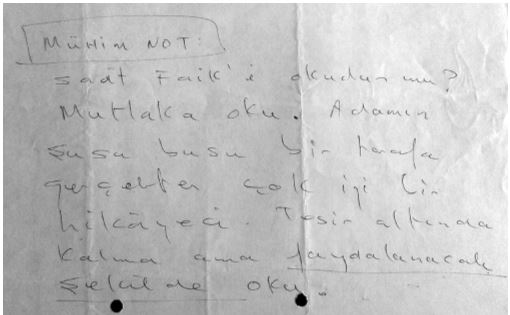 MÜHİM NOT:
Sait Faik'i okudun mu?
Mutlaka oku. Adamın
şusu busu bir tarafa
gerçekten çok iyi bir
hikâyeci. Tesir altında
kalma ama faydalanacak
şekilde oku.